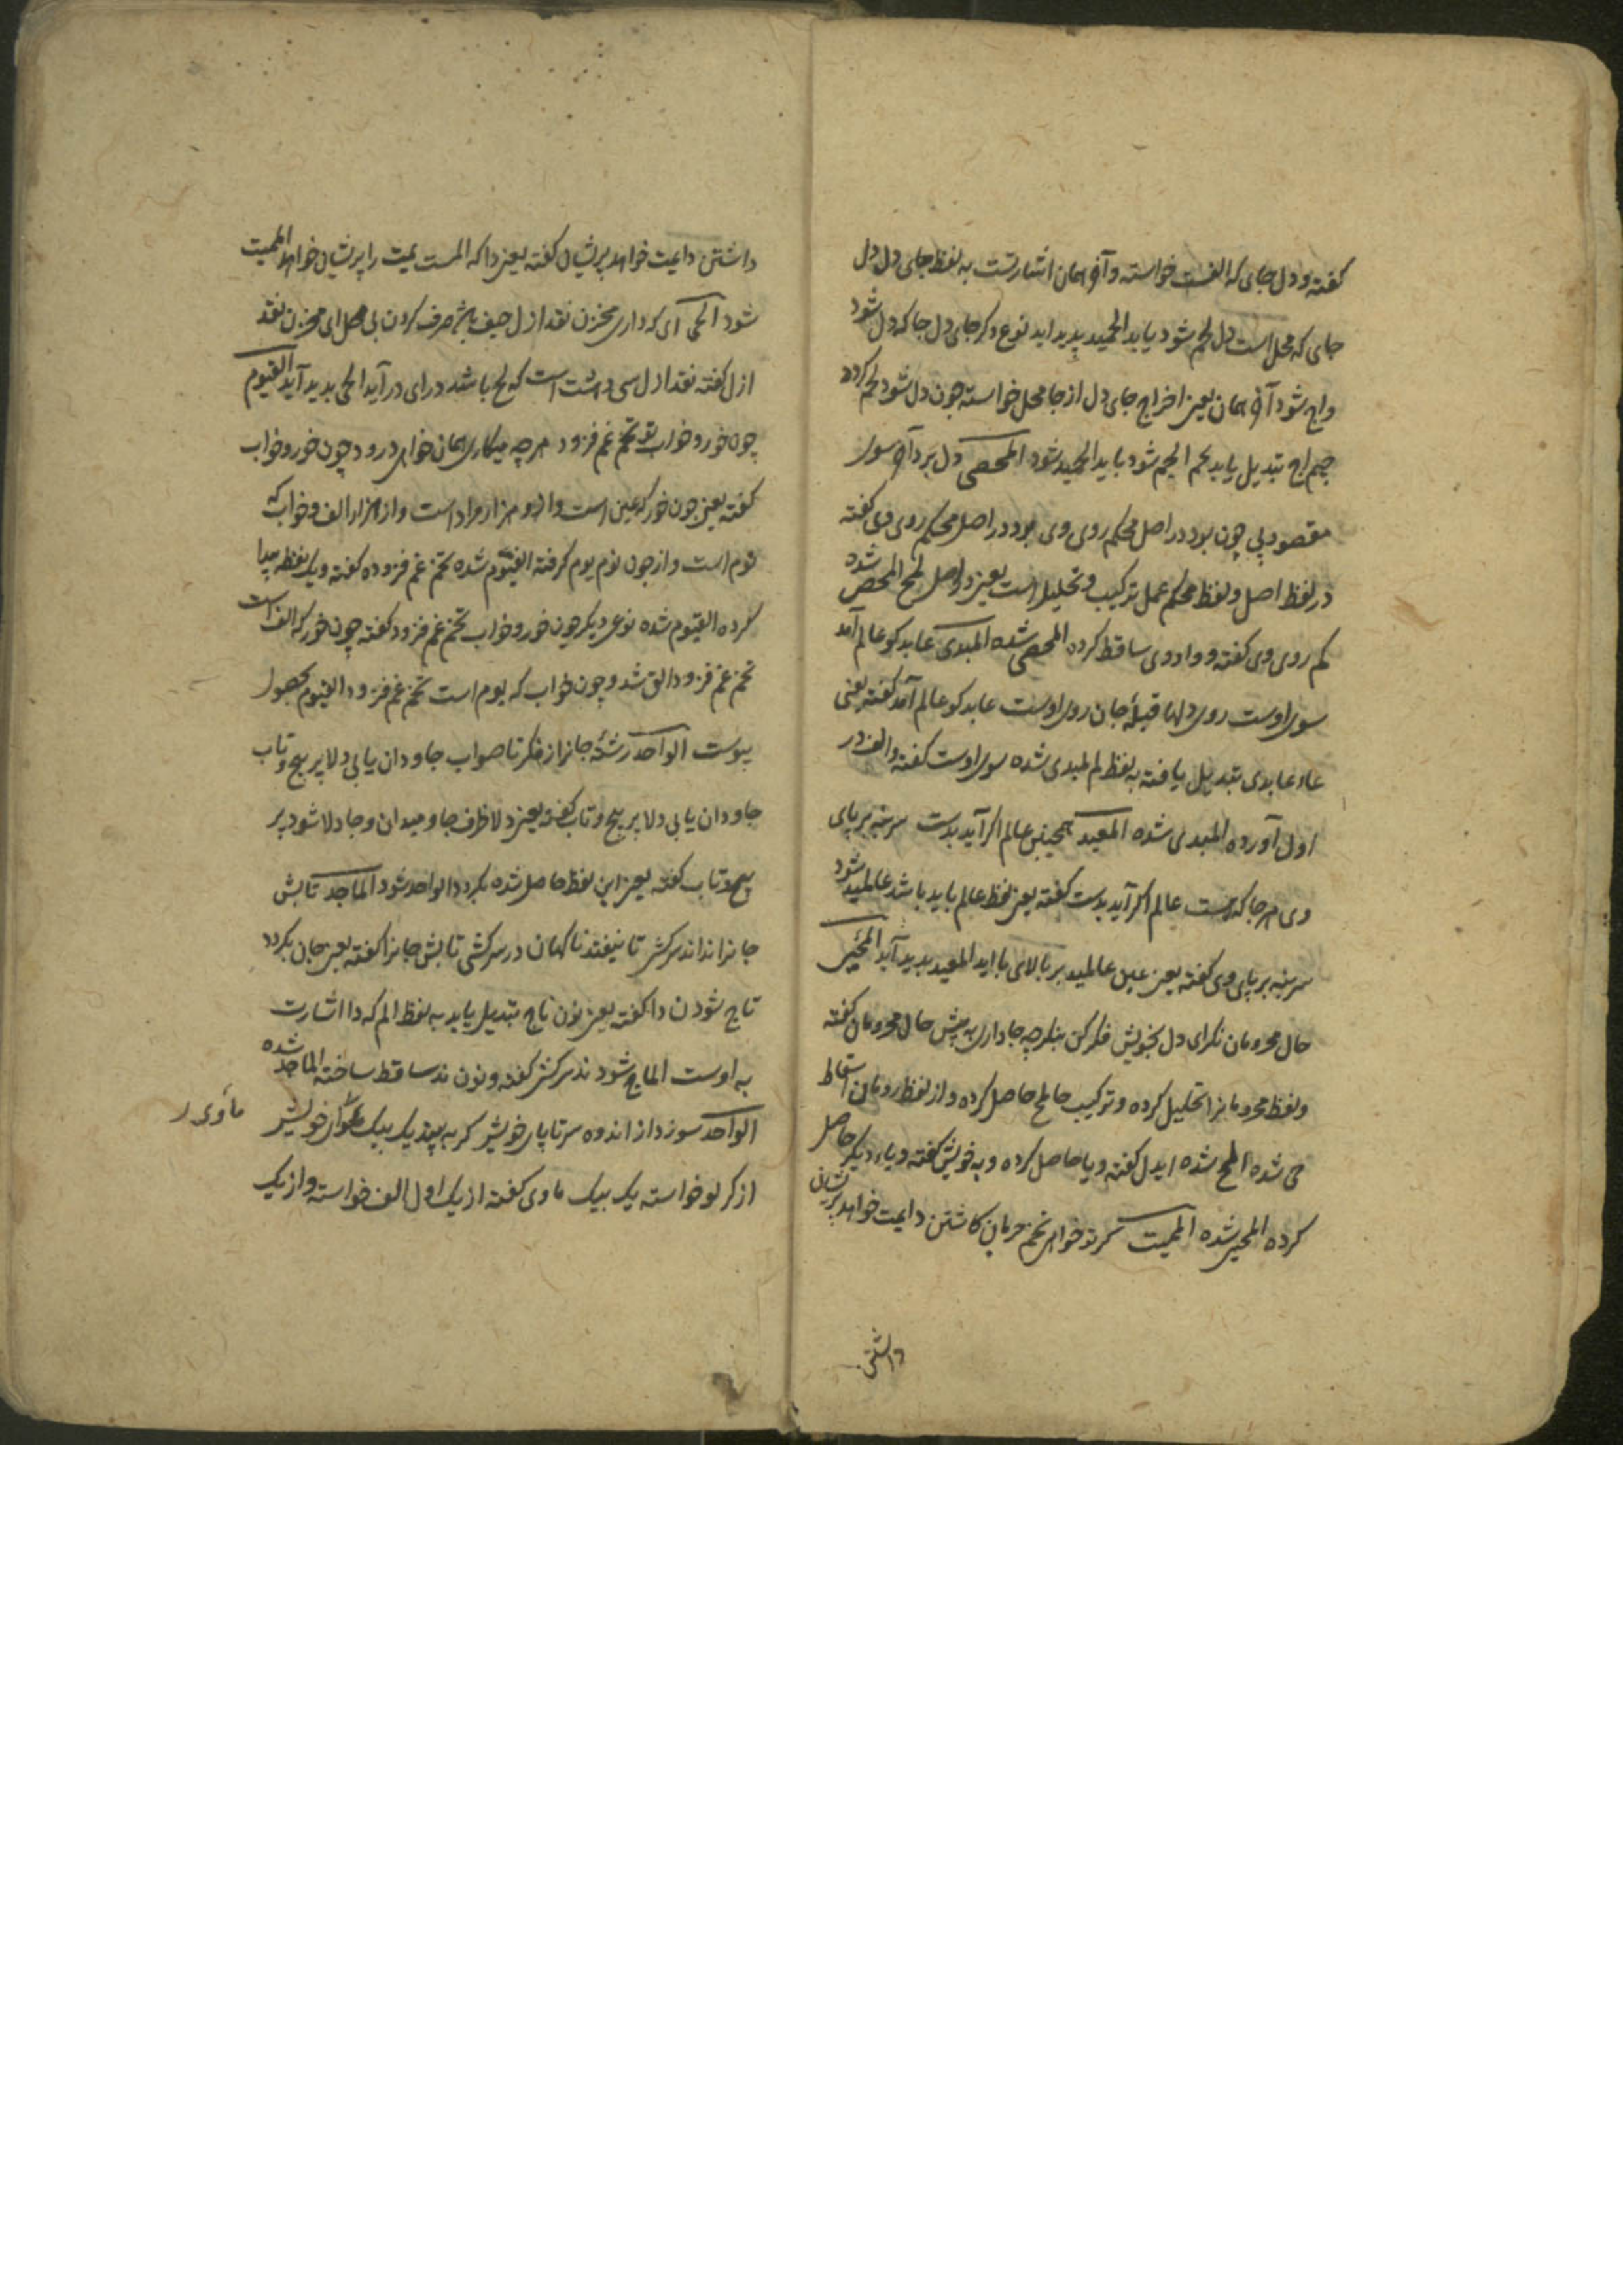 کفته و دل جای که الف است خواسته و آخر همان اشارتست به لفظ جای دل دل
جای که محل است دل لحم شود یابد الحمید پدید اید نوع دکر جای دل جا که دل شود
واج شود آخر همان یعنی اخراج جای دل از جا محل خواسته چون دل شود لحم کردد
جیم اج تبدیل یابد بحم الحم شود یابد الحمید شود المحصی دل برد آخر سوی
مقصود پی چون بود در اصل محکم روی وی بود در اصل محکم روی وی کفته
در لفظ اصل و لفظ محکم عمل ترکیب و تحلیل است یعنی در اصل لمح المحص شده
کم روی وی کفته و واو وی ساقط کرده المحصی شده المبدی عابد کو عالم آمد
سوی اوست روی دلها قبلهٔ جان روی اوست عابد کو عالم آمد کفته یعنی
عاء عابدی تبدیل یافته به لفظ لم لمبدی شده سوی اوست کفته و الف در
اول آورده المبدی شده المعید همچنین عالم اکر آید بدست سر بنه بر پای
وی هر جا که هست عالم اکر آید بدست کفته یعنی لفظ عالم باید باشد عالمید شود
سر بنه بر پای وی کفته یعنی عین عالمید بر بالای با اید المعید پدید آید المحیی
حال محرومان نکر ای دل بخویش فکر کن بنکر چه جا داری به پیش حال محرومان کفته
و لفظ محرومانرا تحلیل کرده و ترکیب حا لمح حاصل کرده و از لفظ رومان اسقاط
می شده المح شده ای دل کفته و یا حاصل کرده و به خویش کفته و یاء دیکر حاصل
کرده المحیی شده الممیت کر تو خواهی تخم حرمان کاشتن دایمت خواهد پریشان
داشتن
داشتن دایمت خواهد پریشان کفته یعنی دا که المست یمت را پریشان خواهد الممیت
شود الحی ای که داری مخزن نقد ازل حیف باشد صرف کردن بی محل ای مخزن نقد
ازل کفته نقد ازل سی و هشت است که لح باشد در ای در آید الحی پدید آید القیوم
چون خور و خواب تو تخم غم فزود هر چه میکاری همان خواهی درود چون خور و خواب
کفته یعنی چون خور که عین است و از و هزار مراد است و از هزار الف و خواب که
نوم است و از چون نوم یوم کرفته الفیوم شده تخم غم فزوده کفته و یک نقطه پیدا
کرده القیوم شده نوعی دیکر چون خور و خواب تخم غم فزود کفته چون خور که الف است
تخم غم فزود الق شد و چون خواب که یوم است تخم غم فزود القیوم بحصول
پیوست الواجد رشتهٔ جانرا ز فکر ناصواب جاودان یابی دلا پر پیچ و تاب
جاودان یابی دلا پر پیچ و تاب کفته یعنی دلا ظرف جاو میدان و جا دلا شود پر
پیچ و تاب کفته یعنی این لفظ حاصل شده بکردد الواجد شود الماجد تابش
جانرا نداند سرکشی تا نیفتد ناکهان در سرکشی تابش جانرا کفته یعنی جان بکردد
ناج شود ن دا کفته یعنی نون ناج تبدیل یابد به لفظ الم که دا اشارت
به اوست الماج شود ند سرکش کفته و نون ند ساقط ساخته الماجد شده
الواحد سوزد از اندوه سر تا پای خویش کر به بیند یک بیک ماوای خویش
ماوی ر
از کر لو خواسته یک بیک ماوی کفته از یک اول الف خواسته و از یک